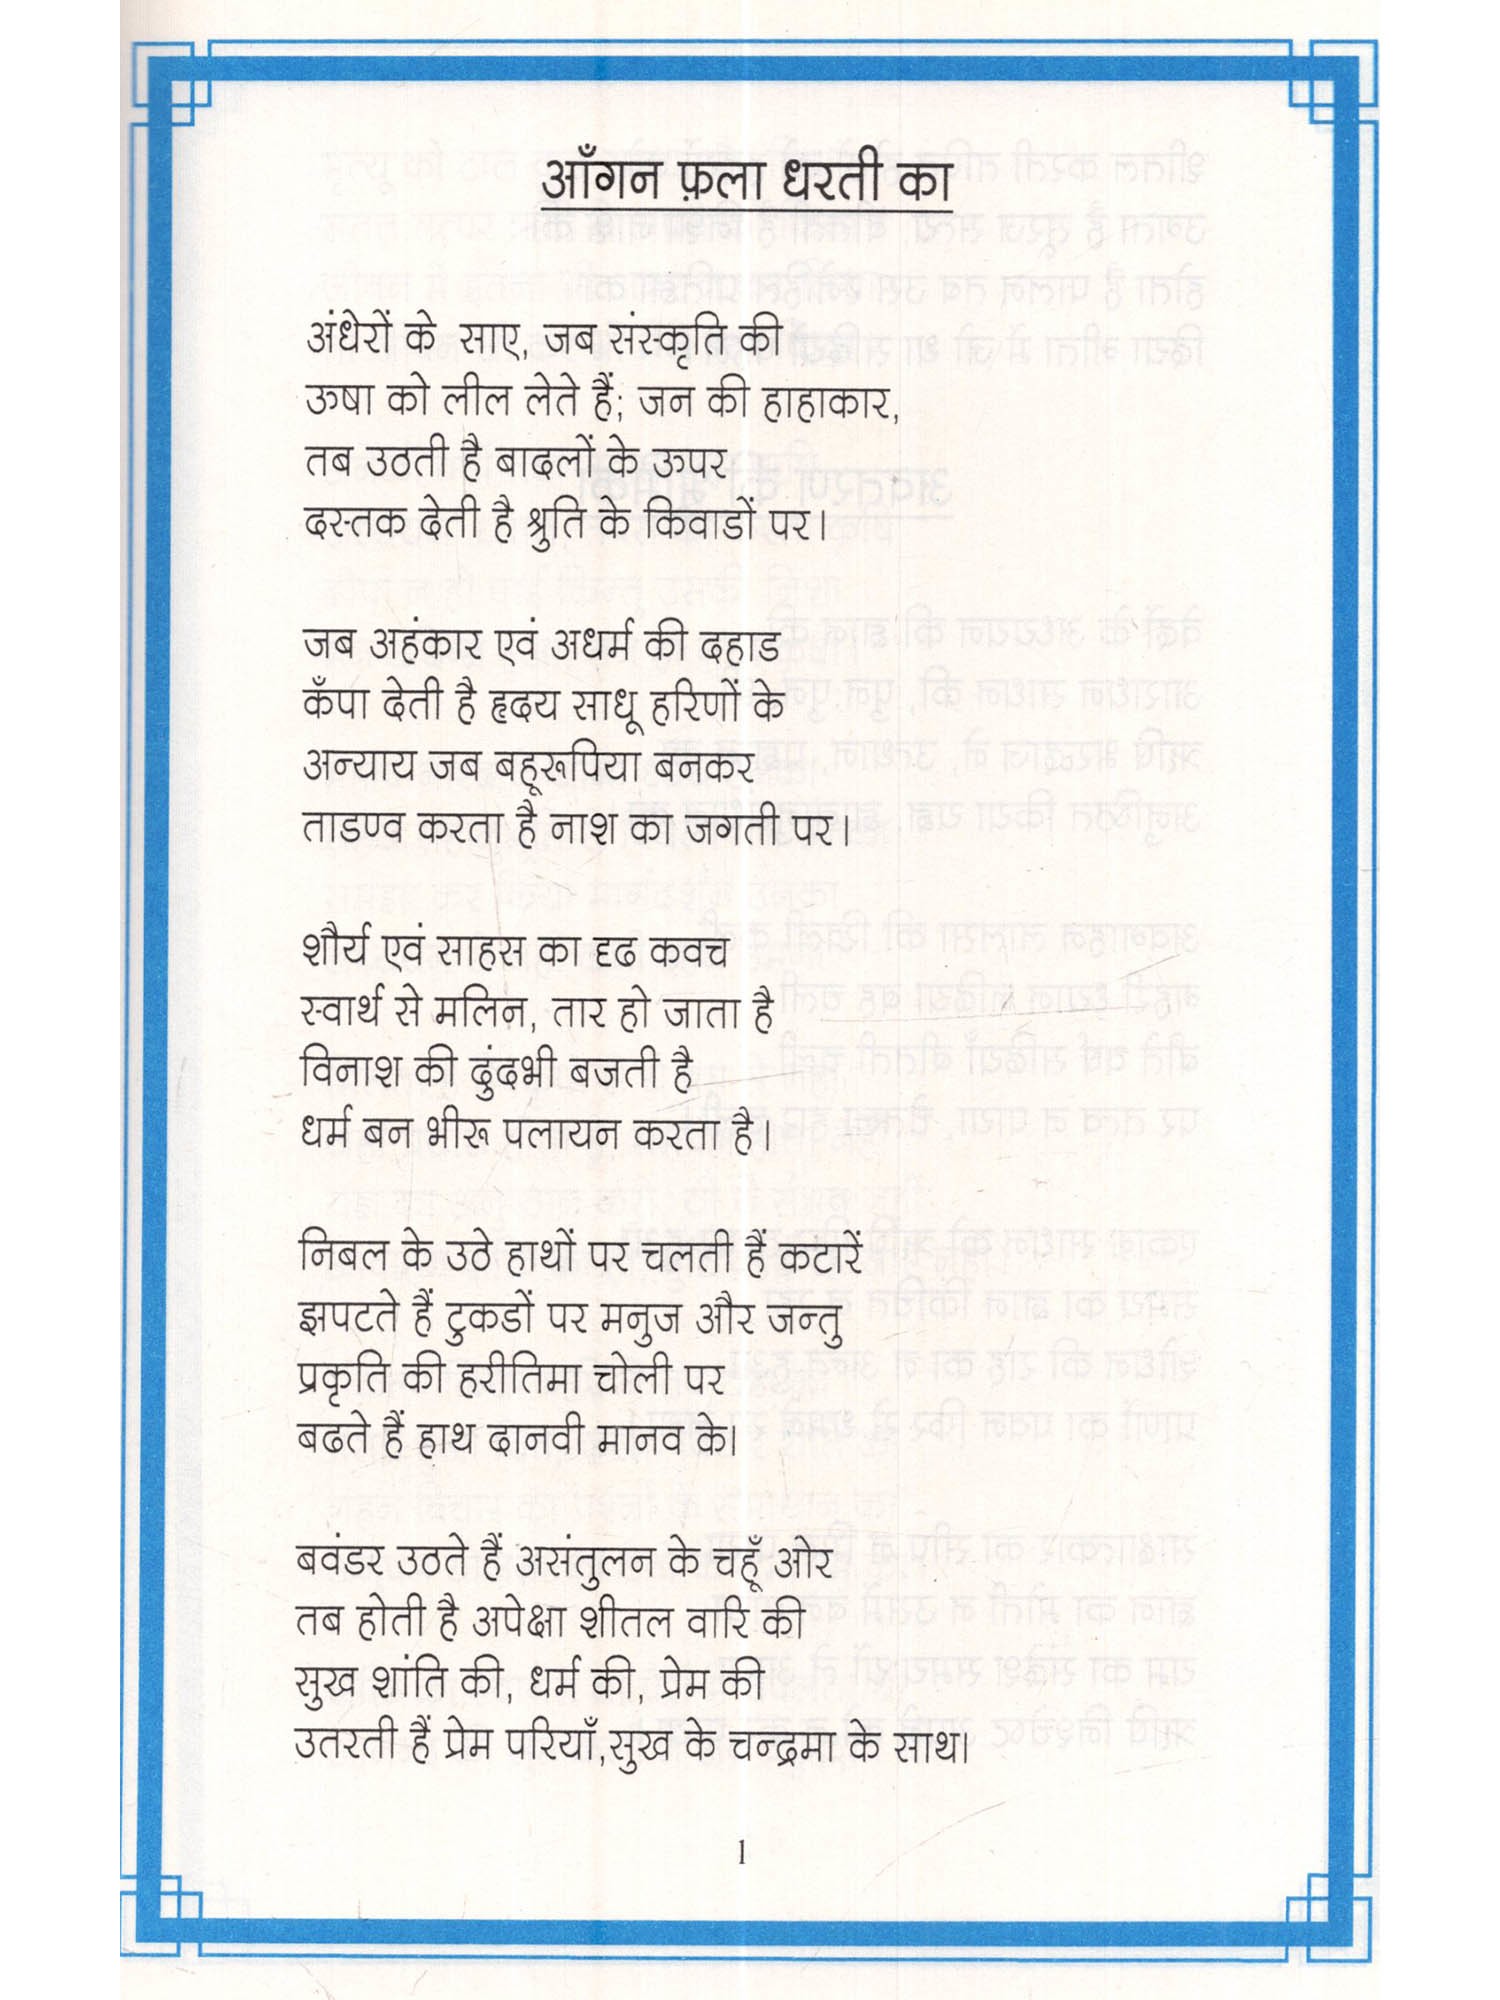 आँगन फ़ला धरती का
अंधेरों के साए, जब संस्कृति की
ऊषा को लील लेते हैं; जन की हाहाकार,
तब उठती है बादलों के ऊपर
दस्तक देती है श्रुति के किवाडों पर।
जब अहंकार एवं अधर्म की दहाड
कँपा देती है हृदय साधू हरिणों के
अन्याय जब बहूरूपिया बनकर
ताडण्व करता है नाश का जगती पर।
शौर्य एवं साहस का दृढ कवच
स्वार्थ से मलिन, तार हो जाता है
विनाश की दुंदभी बजती है
धर्म बन भीरू पलायन करता है।
निबल के उठे हाथों पर चलती हैं कटारें
झपटते हैं टुकडों पर मनुज और जन्तु
प्रकृति की हरीतिमा चोली पर
बढते हैं हाथ दानवी मानव के।
बवंडर उठते हैं असंतुलन के चहूँ ओर
तब होती है अपेक्षा शीतल वारि की
सुख शांति की, धर्म की, प्रेम की
उतरती हैं प्रेम परियाँ,सुख के चन्द्रमा के साथ।
1